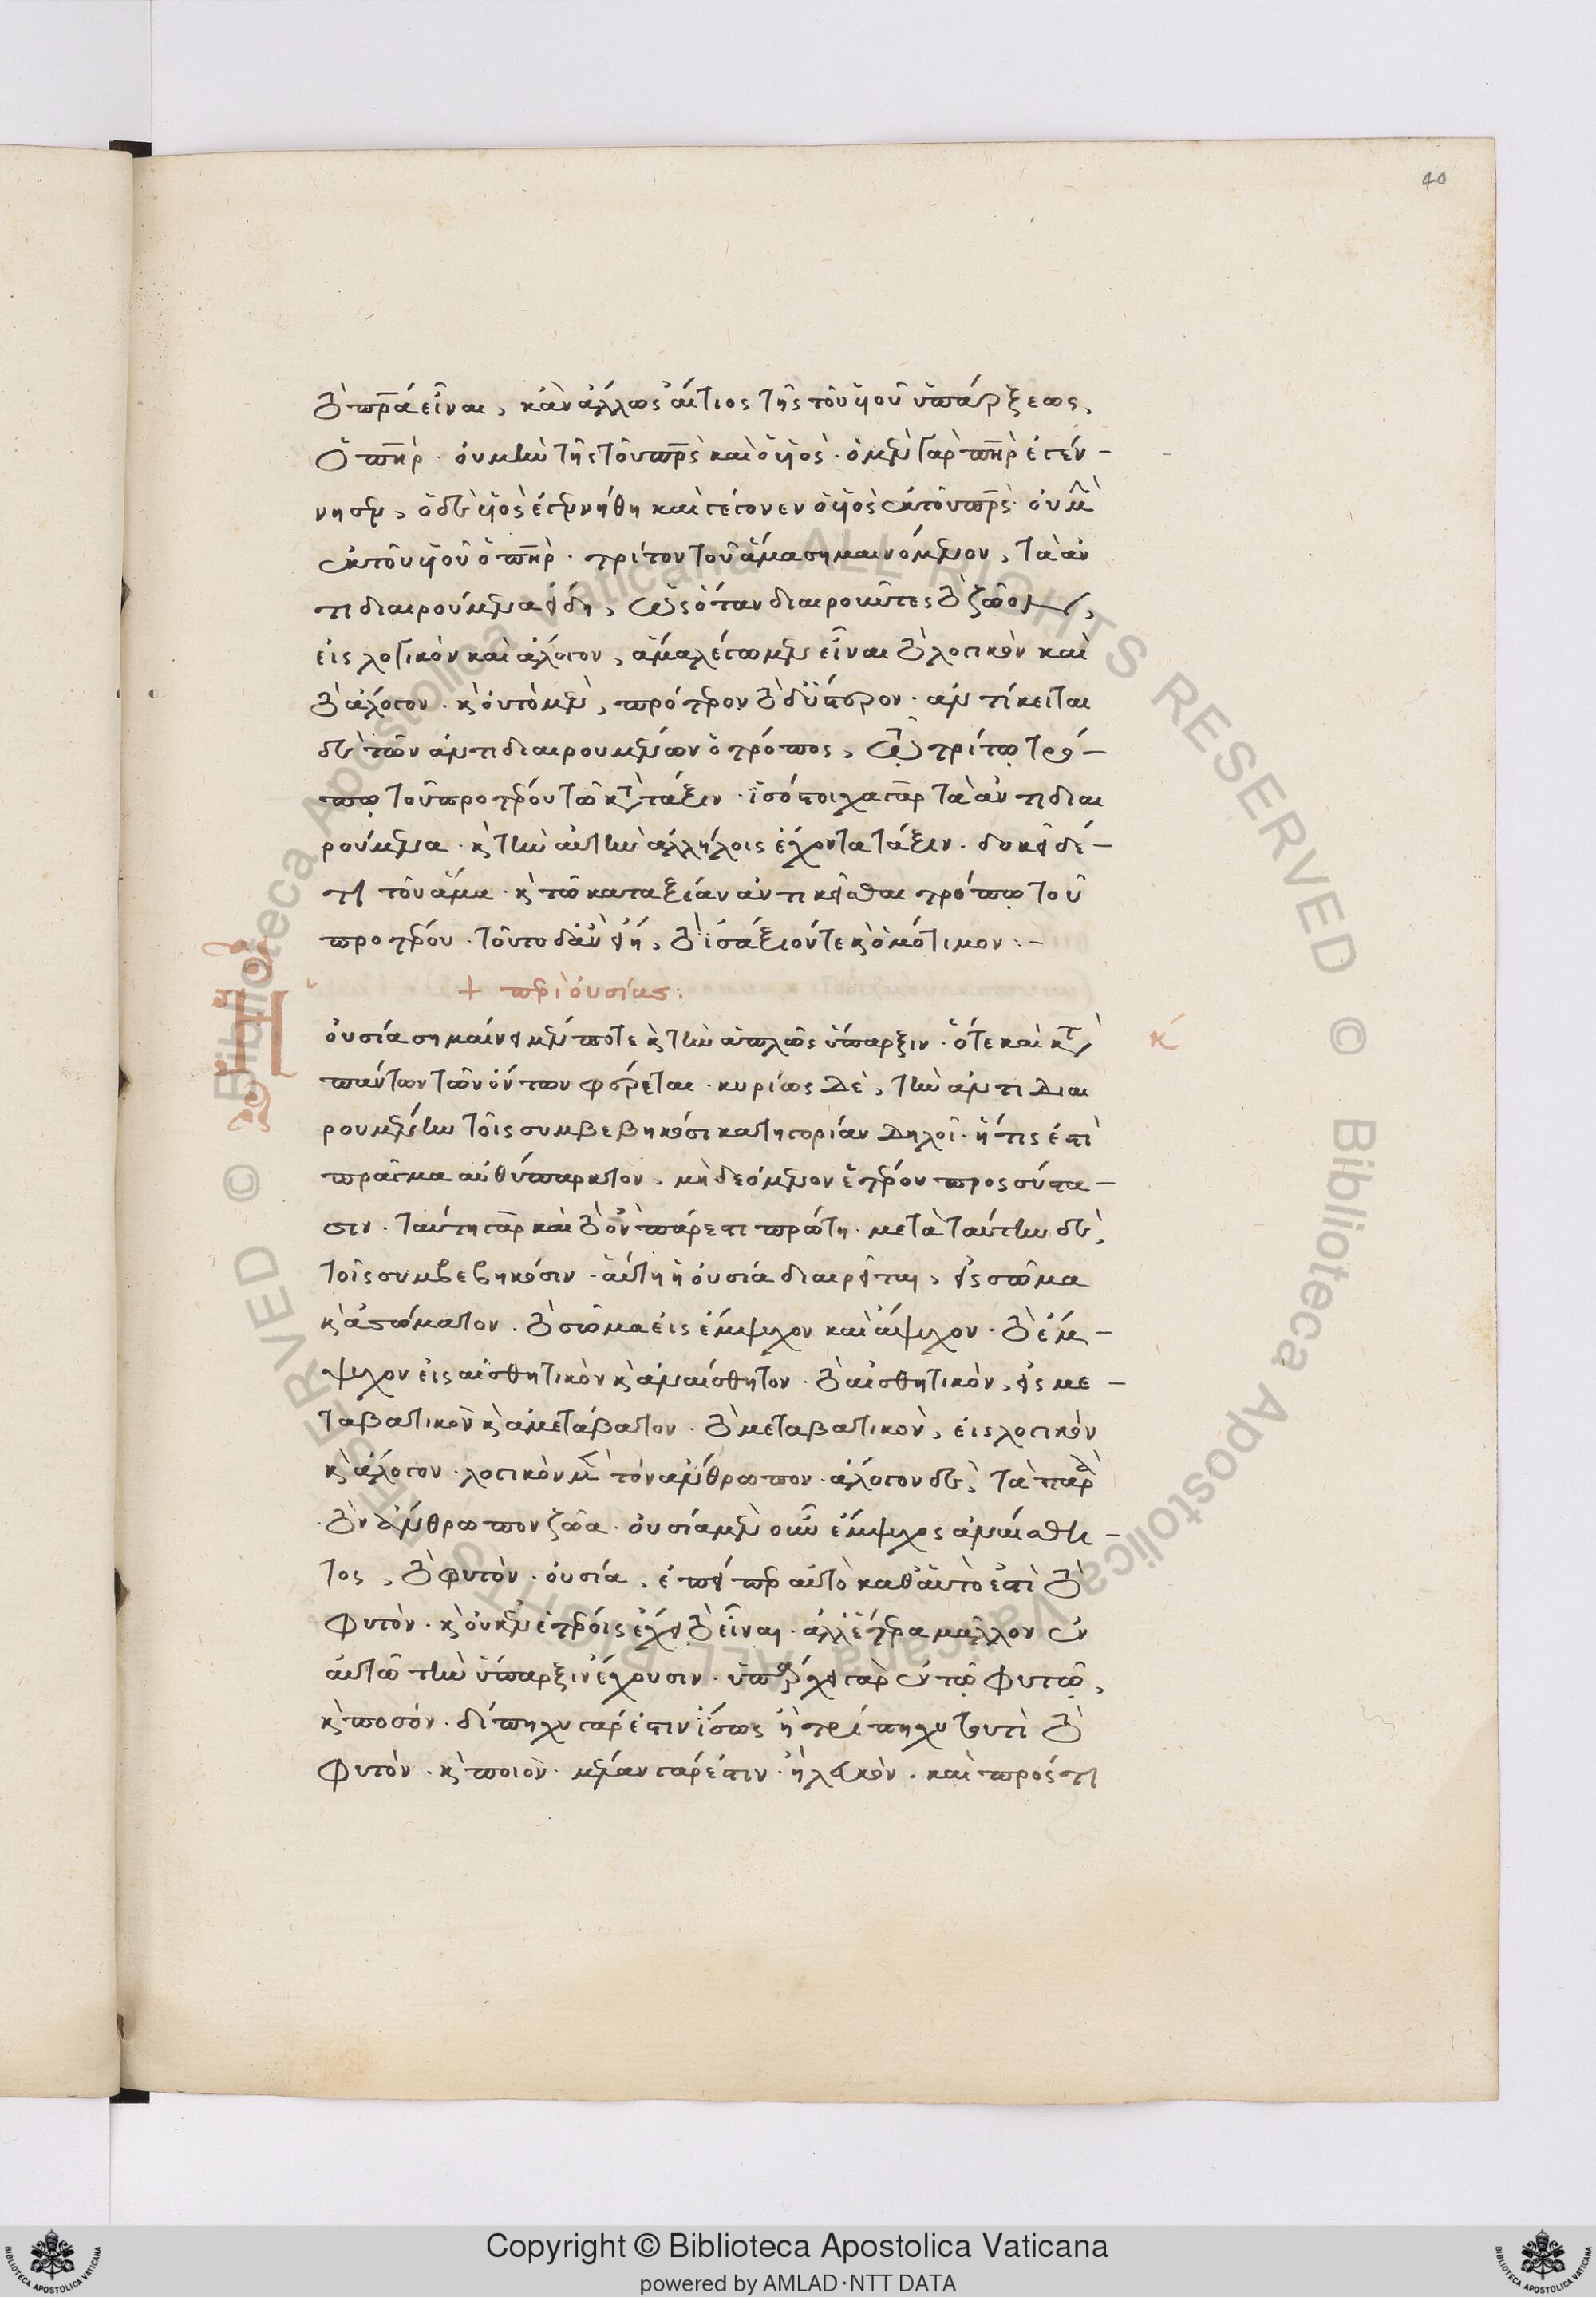 40
τὸ πρ̅α εἶναι, κἂν ἄλλως αἴτιος τῆς τοῦ υἱοῦ ὑπάρξεως,
ὁ πη̅ρ. οὐ μὴν τῆς τοῦ πρ̅ς καὶ ὁ υἱός. ὁ μὲν γὰρ πη̅ρ ἐγέν-
νησεν, ὁ δὲ υἱὸς ἐγεννήθη καὶ γέγονεν ὁ υἱὸς ἐκ τοῦ πρ̅ς. οὐ μὴν
ἐκ τοῦ υἱοῦ ὁ πη̅ρ. τρίτον τοῦ ἅμα σημαινόμενον, τὰ ἀν
τιδιαιρούμενα εἴδη, ὡς ὅταν διαιροῦντες τὸ ζῶον,
εἰς λογικὸν καὶ ἄλογον, ἅμα λέγωμεν εἶναι τὸ λογικὸν καὶ
τὸ ἄλογον. κ οὐ τὸ μὲν, πρότερον τὸ δὲ ὕστερον. ἀντίκειται
δὲ τῶν ἀντιδιαιρουμένων ὁ τρόπος, τῷ τρίτῳ τρό-
πῳ τοῦ προτέρου τῶ κτ τάξιν. ἰσόστοιχα γὰρ τὰ ἀντιδιαι
ρούμενα. κ τὴν αὐτὴν ἀλλήλοις ἔχοντα τάξιν. δοκεῖ δέ-
τι τοῦ ἅμα. κ τῶ κατ αξίαν ἀντικεῖσθαι τρόπῳ τοῦ
προτέρου. τοῦτο δ ἂν εἴη, τὸ ἰσάξιόν τε κ ὁμότιμον :-
+ περὶ οὐσίας :
κ
οὐσία σημαίνει μέν ποτε κ τὴν ἁπλῶς ὕπαρξιν. ὅτε καὶ κτ
πάντων τῶν ὄντων φέρεται. κυρίως δὲ, τὴν ἀντιδιαι
ρουμένην τοῖς συμβεβηκόσι κατηγορίαν δηλοῖ. ἥτις ἐστὶ
πρᾶγμα αὐθύπαρκτον, μὴ δεόμενον ἑτέρου πρὸς σύστα-
σιν. ταύτῃ γὰρ καὶ τὸ ὂν πάρεστι πρώτῃ. μετὰ ταύτην δὲ,
τοῖς συμβεβηκόσιν. αὕτη ἡ οὐσία διαιρεῖται, εἰς σῶμα
κ ἀσώματον. τὸ σῶμα εἰς ἔμψυχον καὶ ἄψυχον. τὸ ἔμ-
ψυχον εἰς αἰσθητικὸν κ ἀναίσθητον. τὸ αἰσθητικὸν, εἰς με-
ταβατικὸν κ ἀμετάβατον. τὸ μεταβατικὸν, εἰς λογικὸν
κ ἄλογον. λογικὸν μὲν τὸν ἄνθρωπον. ἄλογον δὲ, τὰ παρὰ
τὸν ἄνθρωπον ζῶα. οὐσία μὲν οὖν ἔμψυχος ἀναίσθη-
τος, τὸ φυτὸν. οὐσία, ἐπείπερ αὐτὸ καθ αὑτὸ ἐστὶ τὸ
φυτὸν. κ οὐκ ἐν ἑτέροις ἔχει τὸ εἶναι. ἀλλ ἕτερα μᾶλλον ἐν
αὐτῶ τὴν ὕπαρξιν ἔχουσιν. ὑπάρχει γὰρ ἐν τῷ φυτῷ,
κ ποσόν. δίπηχυ γάρ ἐστιν ἴσως ἢ τρίπηχυ τουτὶ τὸ
φυτὸν. κ ποιὸν. μέλαν γάρ ἐστιν. ἢ λευκὸν. καὶ πρός τι
Copyright © Biblioteca Apostolica Vaticana
powered by AMLAD·NTT DATA